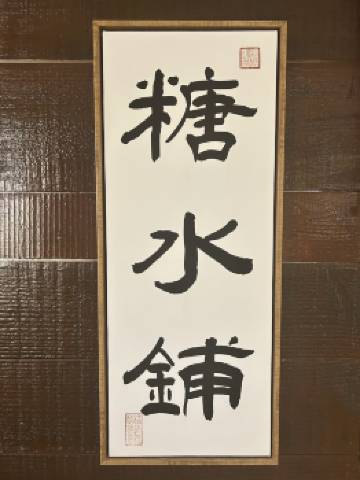 糖水鋪